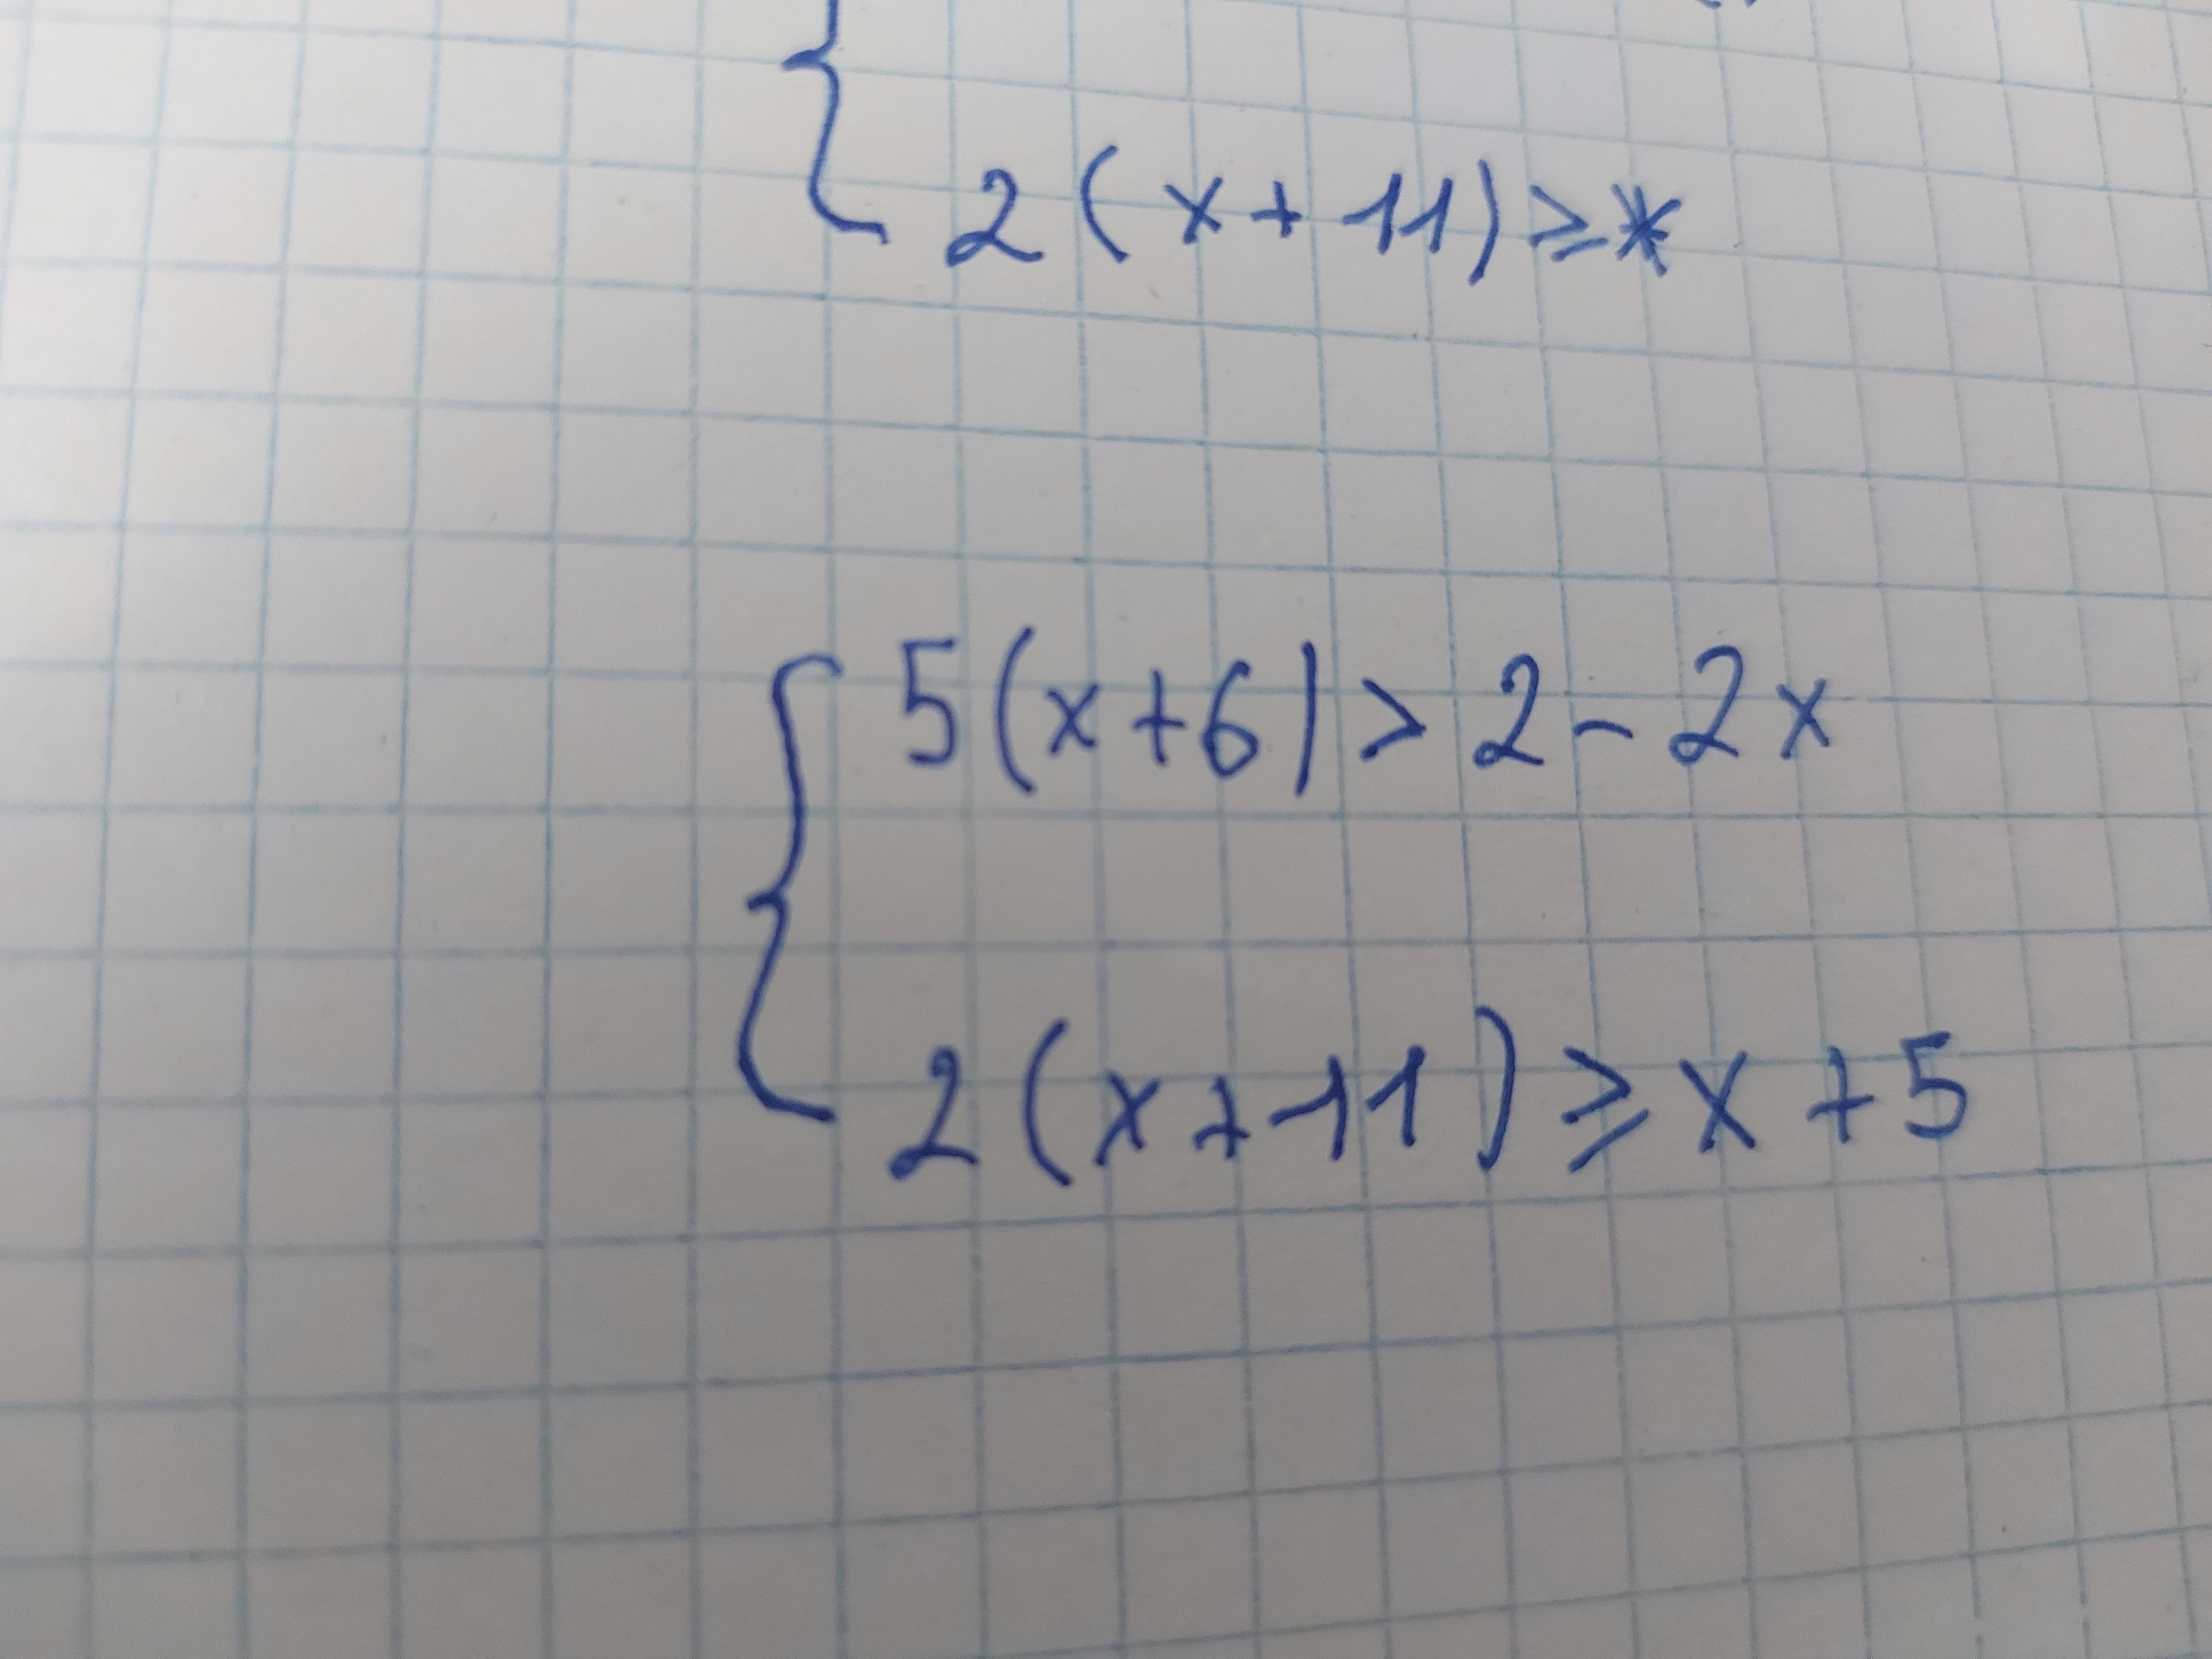 2(x+11)≥
5(x+6)>2-2x
2(x+11)≥x+5